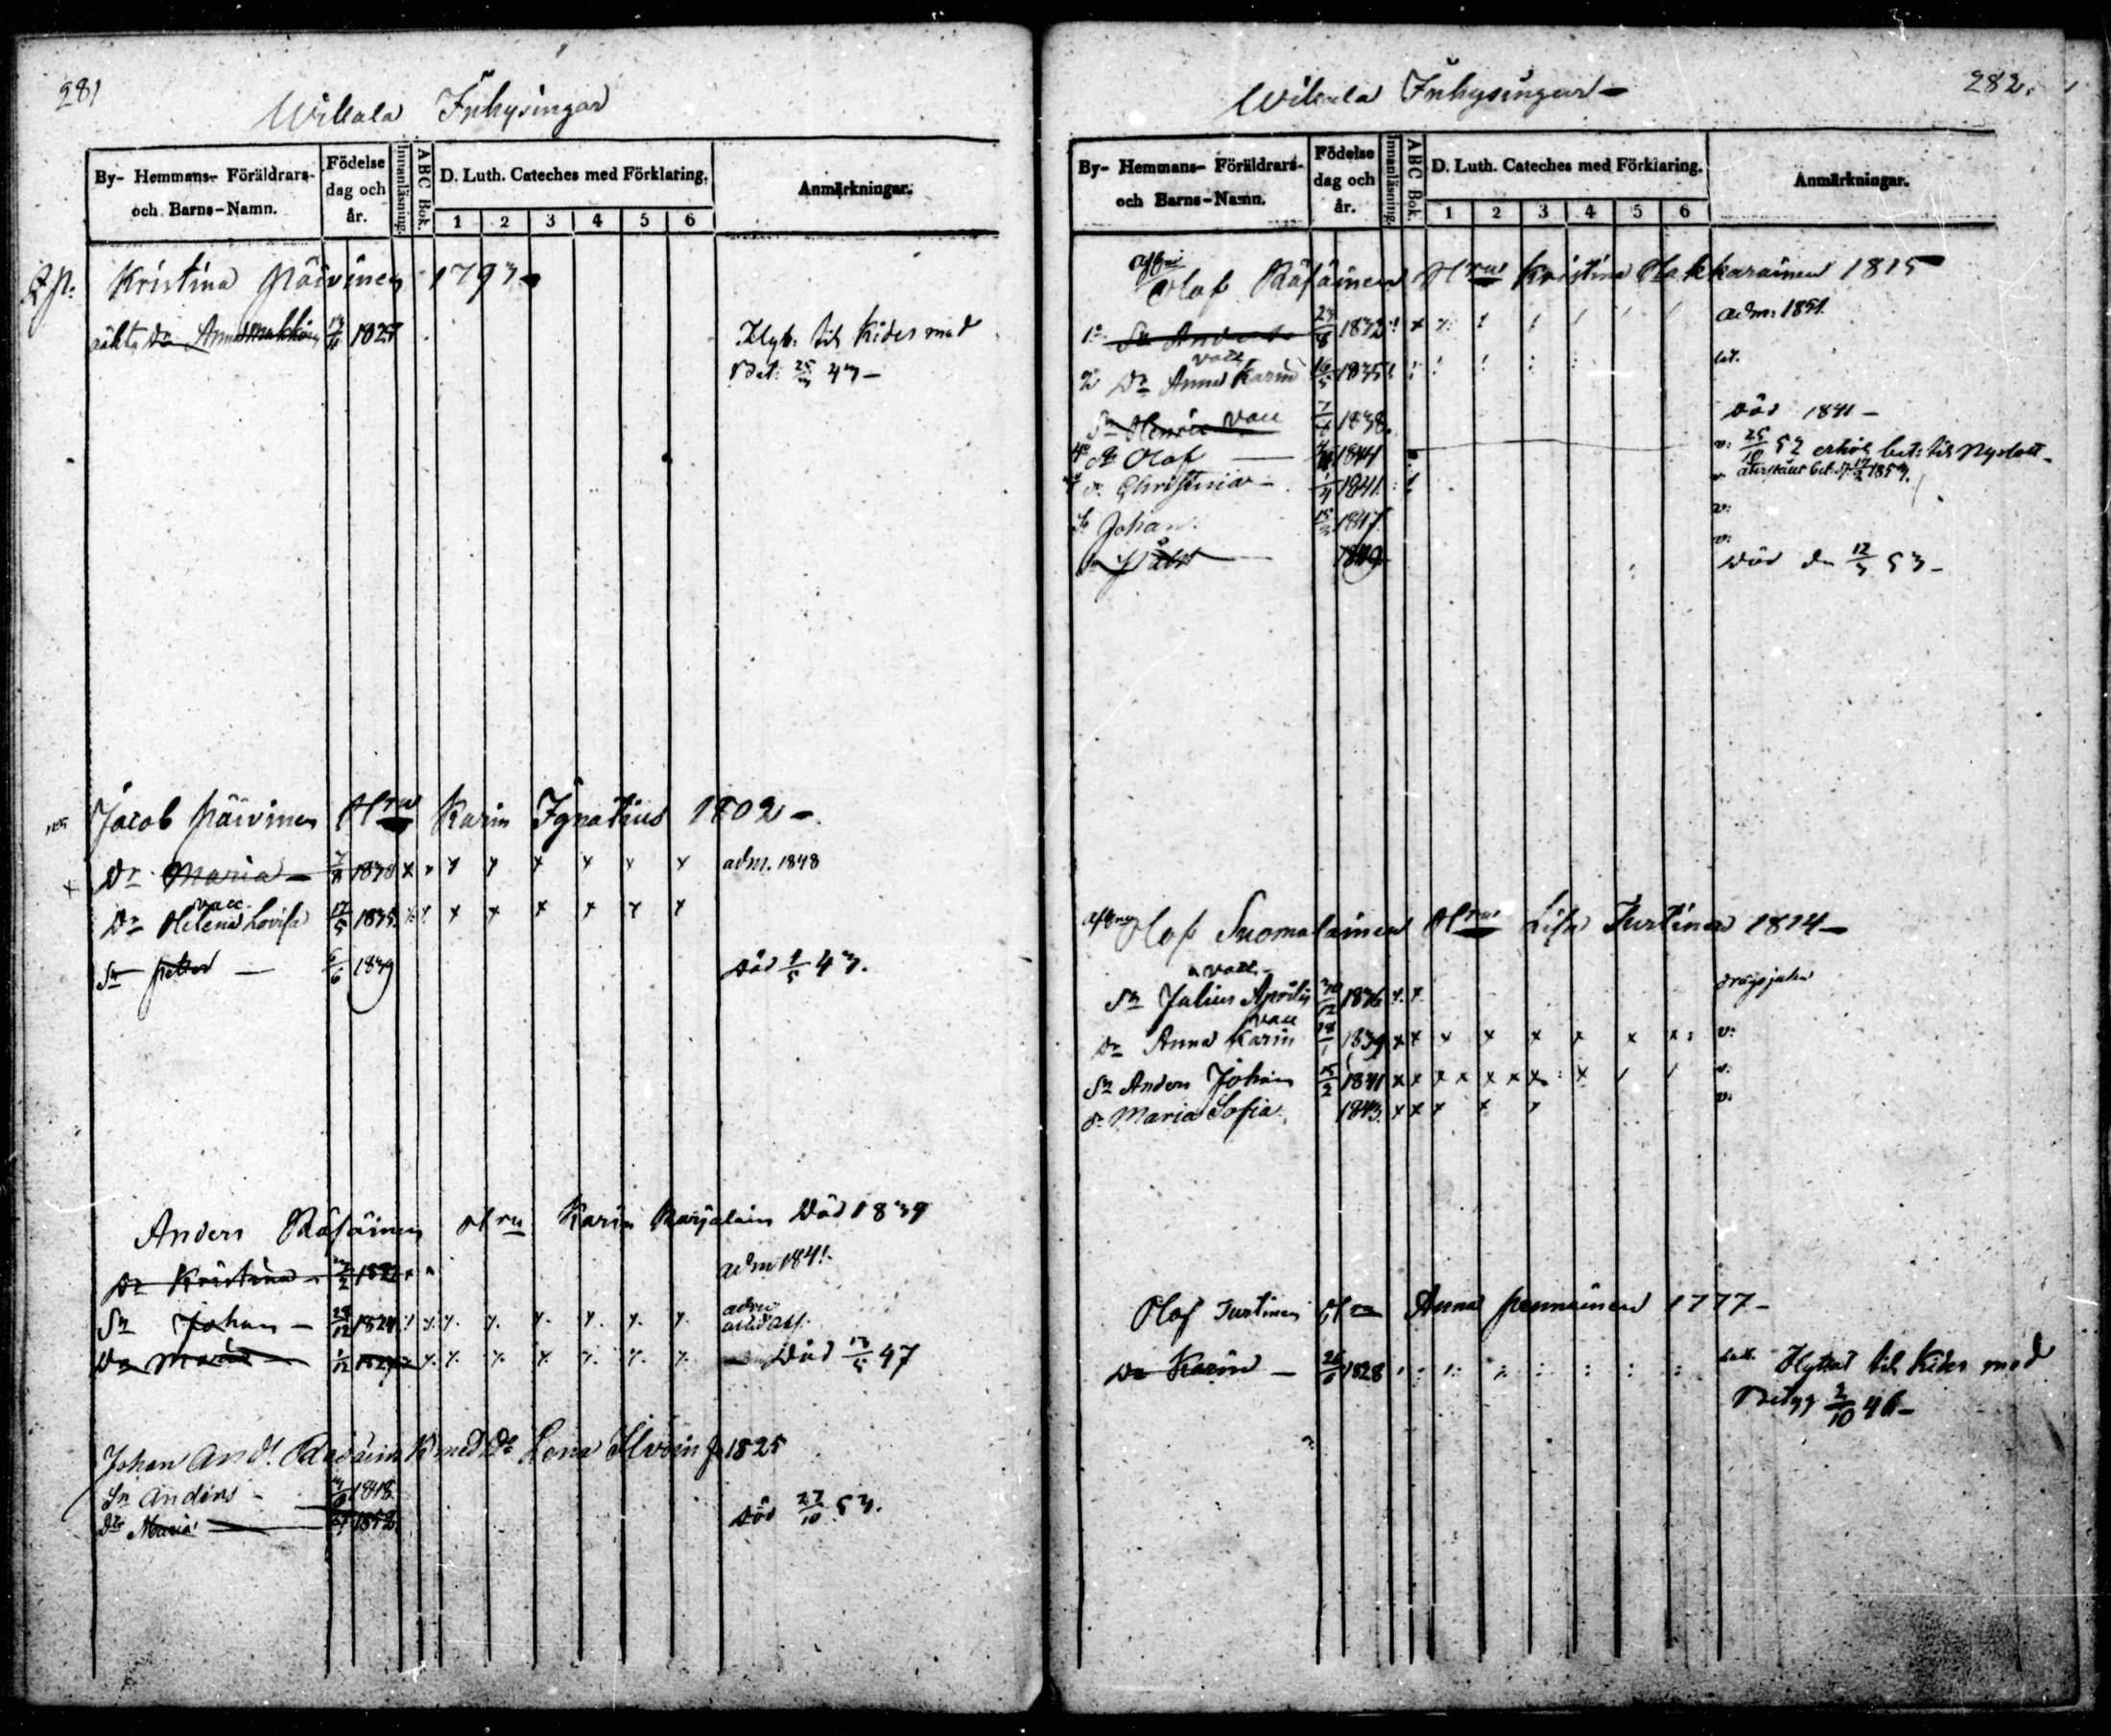 281
Willala Inhysingar
By- Hemmans- Föräldrars- och Barns-Namn.
Födelse dag och år.
Innanläsning.
ABC Bok.
D. Luth. Cateches med Förklaring.
1 2 3 4 5 6
Anmärkningar.
Kristina Päivinen 1793
Dr Anna Makkoin 1825
Flytt. till Kides med
Bet: 25/3 43 –
Jacob Päivinen Hru Karin Ignatius 1802 –
Dr Maria – 1830 x x x x x x x adm. 1848
vacc
Dr Helena Lovisa 17/5 1835 x x x x x x
Sn Petter – 6/6 1839 död 9/5 43.
Anders Räsäinen Hru Karin Karjalain Död 1839
Dr Kristina – 1822 adm 1841.
Sn Johan – 28/12 1824
Dr Maria Död 13/5 47
Johan And: Räsäin Lena Ilvoin 1825
Sn Anders – 1848
Dr Maria 1852 död 27/10 53.
282.
Willala Inhysingar –
By- Hemmans- Föräldrars- och Barns-Namn.
Födelse dag och år.
Innanläsning.
ABC Bok.
D. Luth. Cateches med Förklaring.
1 2 3 4 5 6
Anmärkningar.
Olof Räsäinen Hru Kristina Hakkarainen 1815
Sn Anders 1832 adm: 1851
vacc
Dr Anna Karin 16/5 1835
Sn Henric vacc 1838. död 1841 –
Olof 1844 v: 25/10 52 erhöl bet: till Nyslott –
dr Christina – 1841. v
Johan 15/3 1847 v:
1849 Död den 12/3 53 –
Olof Suomalainen Hru Lisa Turtinen 1814 –
vacc –
Sn Julius 30/12 1836 x x
vacc
Dr Anna Karin 18/1 1839 x x x x x x x x v:
Sn Anders Johan 15/2 1841 x x x x x x x x v:
dr Maria Sofia 1843. x x x x x v:
Olof Turtinen Hru Anna Pennainen 1777 –
Dr Karin – 26/6 1828 Flyttat till Kides med
Betyg 2/10 46 –